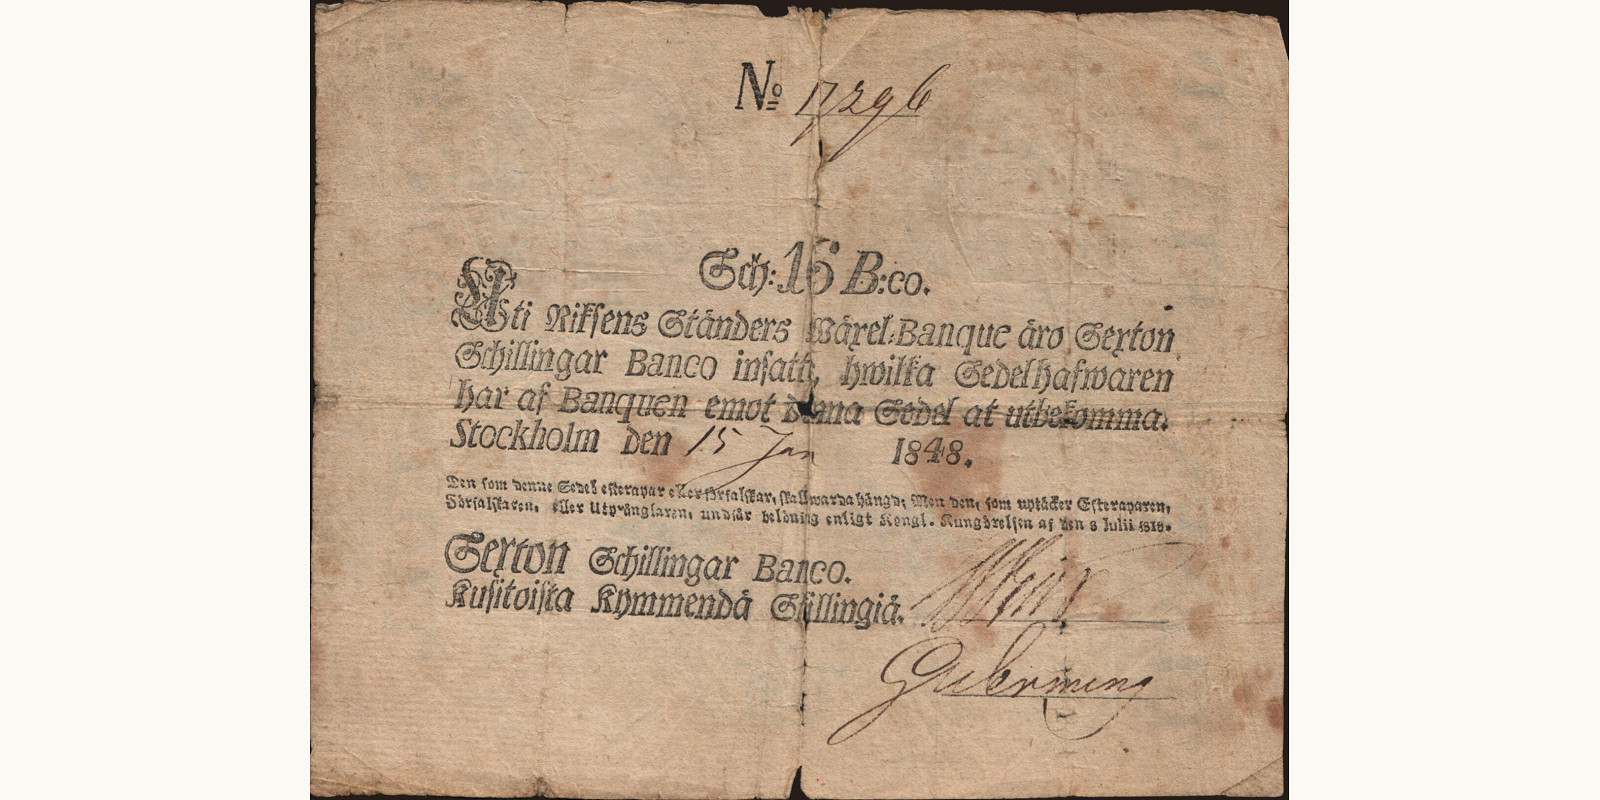 No 17296
Sch: 16 B:co.
Uti Riksens Ständers Wäxel-Banque äro Sexton
Schillingar Banco insatt, hwilka Sedelhafwaren
har af Banquen emot denna Sedel at utbekomma.
Stockholm den 15 Jan 1848.
Den som denne Sedel efterapar eller förfalskar, skall warda hängd; Men den, som uptäcker Efteraparen,
Förfalskaren, eller Utprånglaren, undfår belöning enligt Kongl. Kungörelsen af den 8 Julii 1818.
Sexton Schillingar Banco.
Kusitoista Kymmendä Skillingiä.